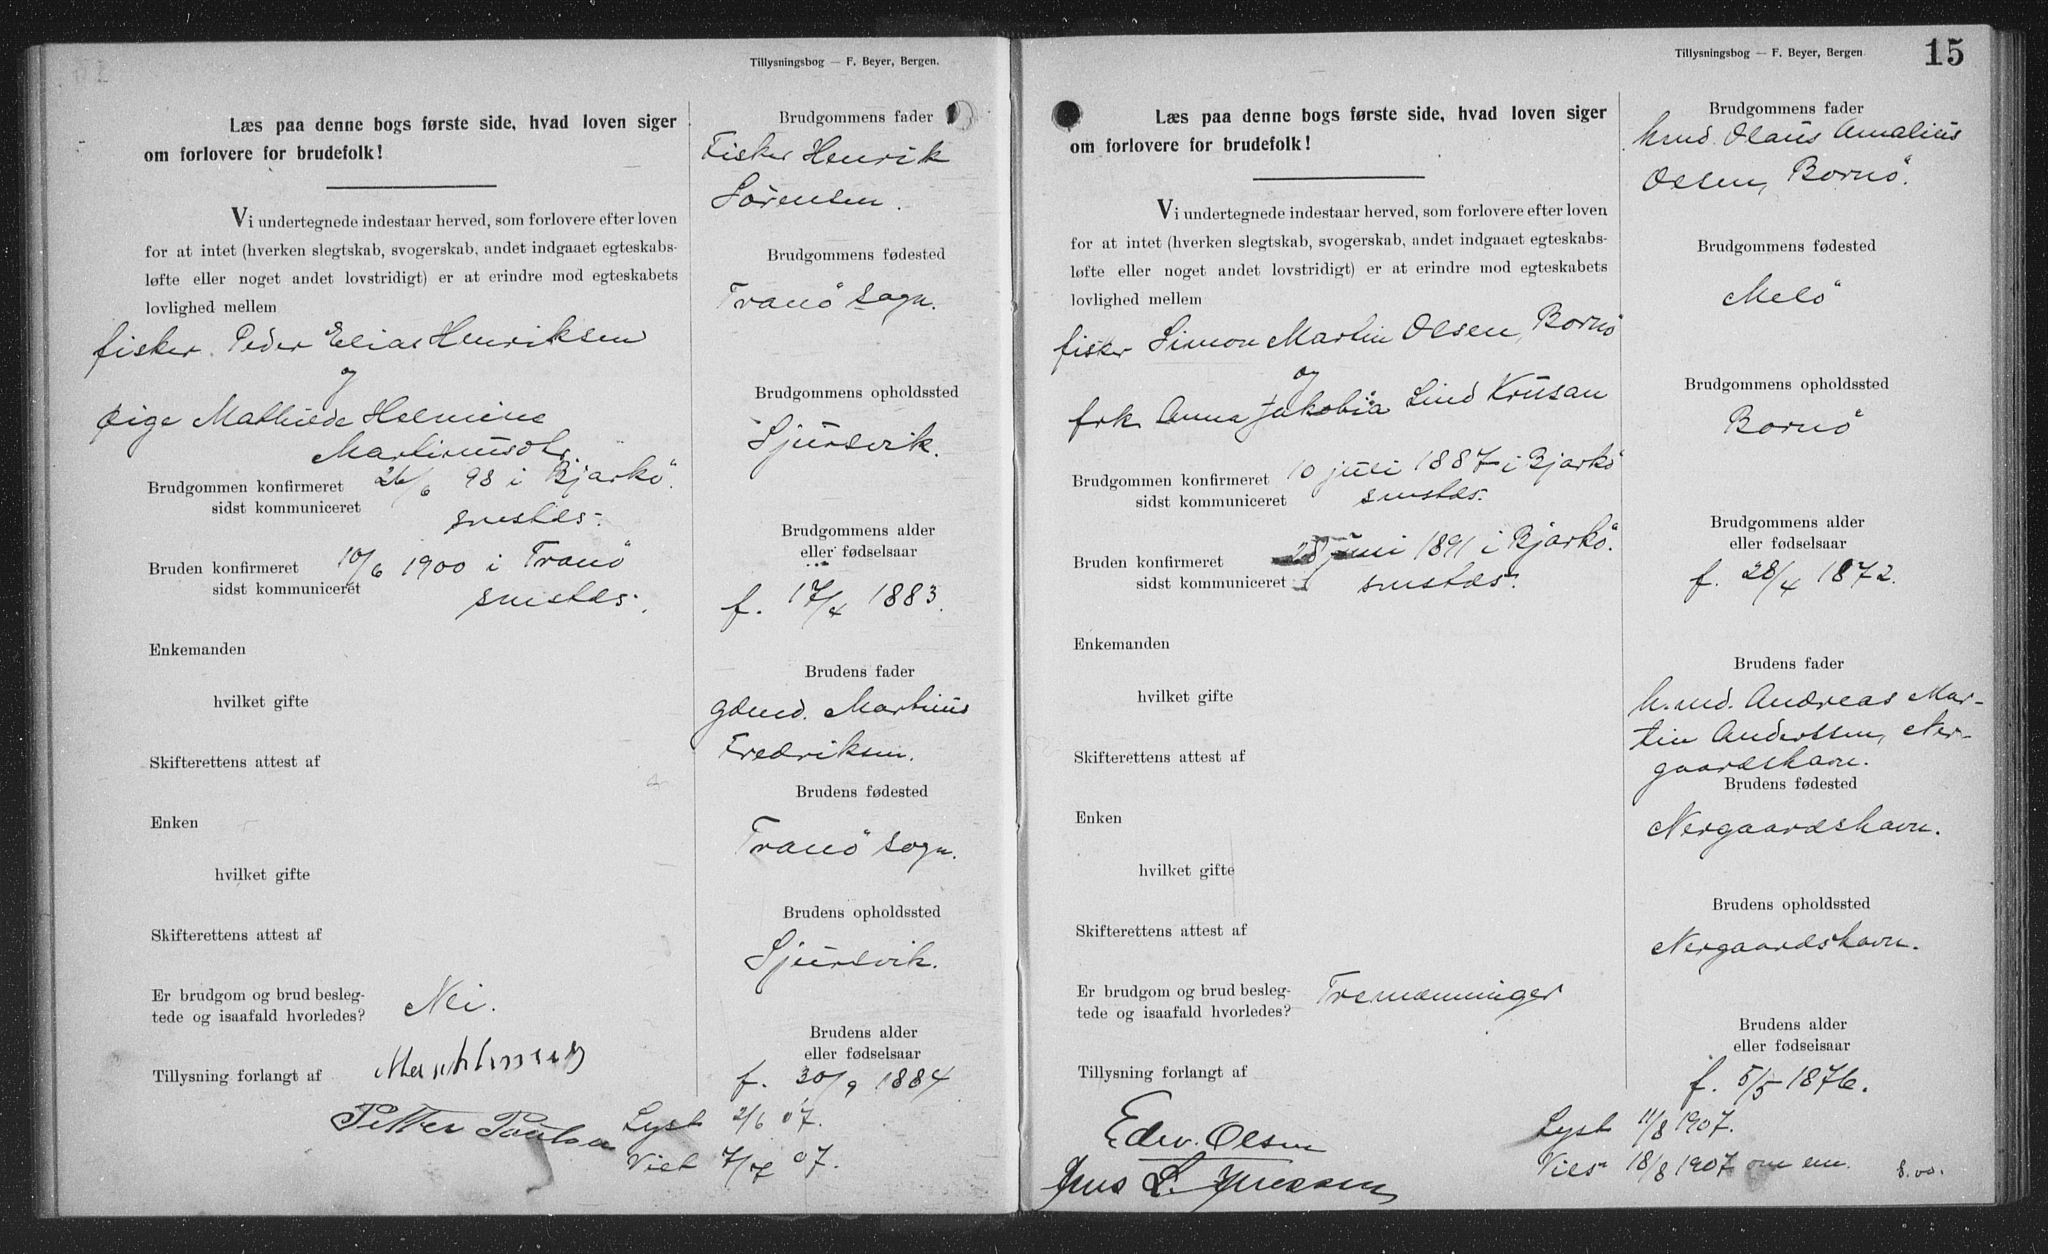 Tillysningsbog — F. Beyer, Bergen.
Læs paa denne bogs første side, hvad loven siger
om forlovere for brudefolk!
Vi undertegnede indestaar herved, som forlovere efter loven
for at intet (hverken slegtskab, svogerskab, andet indgaaet egteskabs-
løfte eller noget andet lovstridigt) er at erindre mod egteskabets
lovlighed mellem
fisker Peder Elias Henriksen
og
pige Mathilde Helmine
Martinusdtr.
Brudgommen konfirmeret 26/6 98 i Bjarkö.
sidst kommuniceret smstds.
Bruden konfirmeret 10/6 1900 i Tranö
sidst kommuniceret smstds.
Enkemanden
hvilket gifte
Skifterettens attest af
Enken
hvilket gifte
Skifterettens attest af
Er brudgom og brud besleg-
tede og isaafald hvorledes? Nei.
Tillysning forlangt af
Petter Paulsen
Brudgommens fader
Fisker Henrik
Sörensen.
Brudgommens fødested
Tranö sogn.
Brudgommens opholdssted
Sjursvik.
Brudgommens alder
eller fødselsaar
f. 17/4 1883.
Brudens fader
gdmd. Martinus
Fredriksen.
Brudens fødested
Tranö sogn.
Brudens opholdssted
Sjursvik.
Brudens alder
eller fødselsaar
f. 30/9 1884
Lyst 2/6 07.
Viet 7/7 07.
Tillysningsbog — F. Beyer, Bergen
15
Læs paa denne bogs første side, hvad loven siger
om forlovere for brudefolk!
Vi undertegnede indestaar herved, som forlovere efter loven
for at intet (hverken slegtskab, svogerskab, andet indgaaet egteskabs-
løfte eller noget andet lovstridigt) er at erindre mod egteskabets
lovlighed mellem
fisker Simon Martin Olsen, Bornö
og
frk Anna Jakobia Lind Krusan
Brudgommen konfirmeret 10 juli 1887 i Bjarkö
sidst kommuniceret smstds.
Bruden konfirmeret 28 juni 1891 i Bjarkö.
sidst kommuniceret smstds.
Enkemanden
hvilket gifte
Skifterettens attest af
Enken
hvilket gifte
Skifterettens attest af
Er brudgom og brud besleg-
tede og isaafald hvorledes? Tremænninger
Tillysning forlangt af
Edv. Olsen
Jens L.
Brudgommens fader
hmd. Olaus Amalius
Olsen, Bornö.
Brudgommens fødested
Melö
Brudgommens opholdssted
Bornö
Brudgommens alder
eller fødselsaar
f. 28/4 1872.
Brudens fader
h.md. Andreas Mar-
tin Anderssen, Ner-
gaardshavn.
Brudens fødested
Nergaardshavn.
Brudens opholdssted
Nergaardshavn.
Brudens alder
eller fødselsaar
f. 5/5 1876.
Lyst 11/8 1907.
Vies 18/8 1907 om em. 8.00.